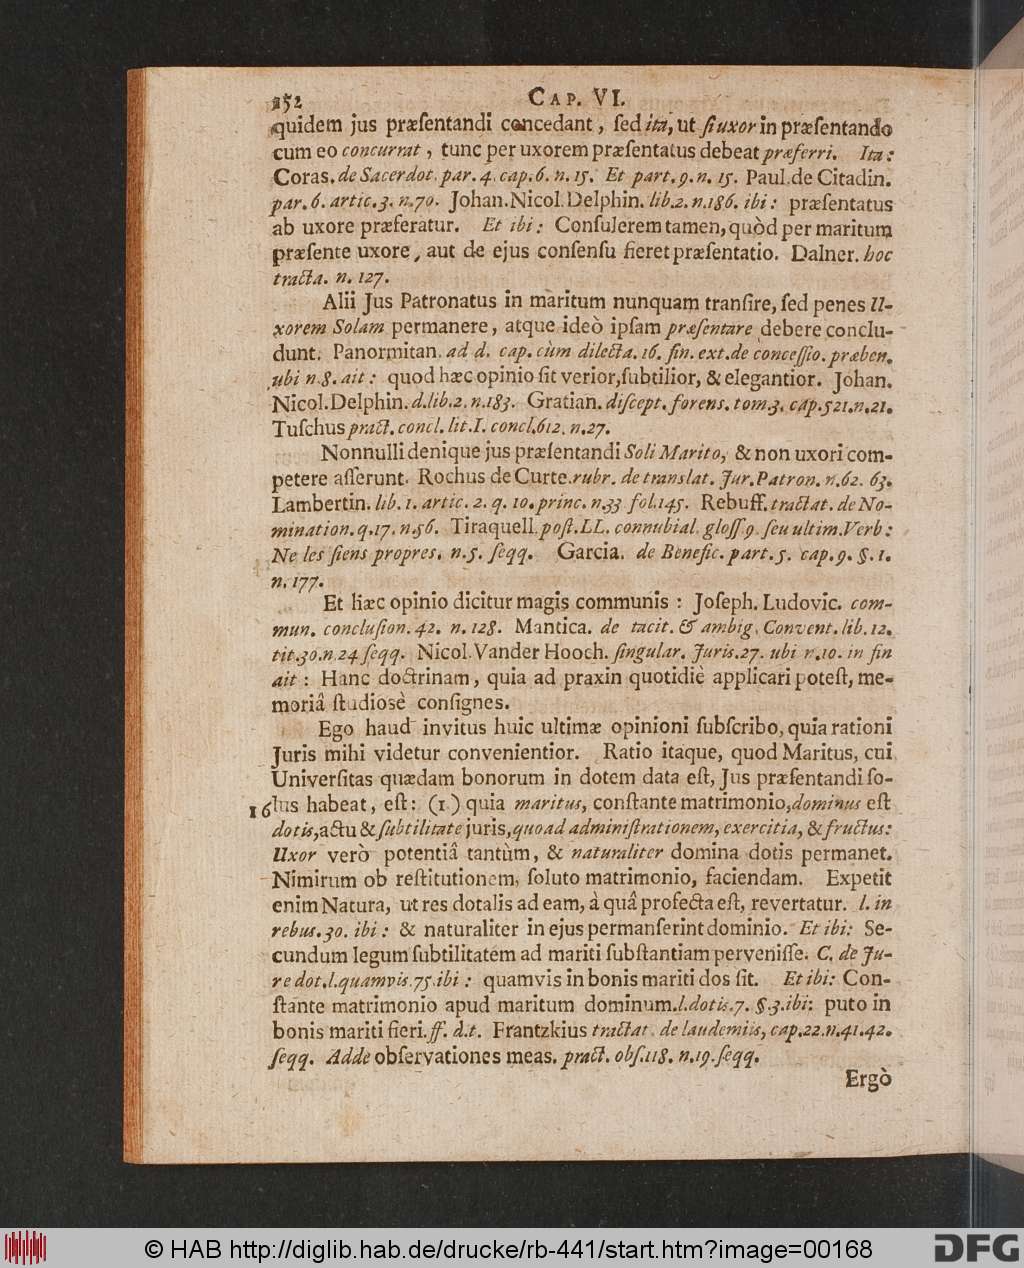 152 CAP. VI.
quidem jus præſentandi concedant, ſed ita, ut ſi uxor in præſentando
cum eo concurrat, tunc per uxorem præſentatus debeat præferri. Ita:
Coras. de Sacerdot. par. 4. cap. 6. n. 15. Et part. 9. n. 15. Paul. de Citadin.
par. 6. artic. 3. n. 70. Johan. Nicol. Delphin. lib. 2. n. 186. ibi: præſentatus
ab uxore præferatur. Et ibi: Conſulerem tamen, quòd per maritum
præſente uxore, aut de ejus conſenſu fieret præſentatio. Dalner. hoc
tracta. n. 127.
Alii Jus Patronatus in maritum nunquam tranſire, ſed penes U-
xorem Solam permanere, atque ideò ipſam præſentare debere conclu-
dunt. Panormitan. ad d. cap. cùm dilecta. 16. fin. ext. de conceſſio. præben.
ubi n. 8. ait: quod hæc opinio ſit verior, ſubtilior, & elegantior. Johan.
Nicol. Delphin. d. lib. 2. n. 183. Gratian. diſcept. forens. tom. 3. cap. 521. n. 21.
Tuſchus pract. concl. lit. I. concl. 612. n. 27.
Nonnulli denique jus præſentandi Soli Marito, & non uxori com-
petere aſſerunt. Rochus de Curte. rubr. de translat. Jur. Patron. n. 62. 63.
Lambertin. lib. 1. artic. 2. q. 10. princ. n. 33 fol. 145. Rebuff. tractat. de No-
mination. q. 17. n. 56. Tiraquell. poſt. LL. connubial. gloſſ. 9. ſeu ultim. Verb:
Ne les ſiens propres. n. 5. ſeqq. Garcia. de Benefic. part. 5. cap. 9. §. 1.
n. 177.
Et hæc opinio dicitur magis communis: Joſeph. Ludovic. com-
mun. concluſion. 42. n. 128. Mantica. de tacit. & ambig. Convent. lib. 12.
tit. 30. n. 24 ſeqq. Nicol. Vander Hooch. ſingular. Juris. 27. ubi n. 10. in fin
ait: Hanc doctrinam, quia ad praxin quotidiè applicari poteſt, me-
moriâ ſtudiosè conſignes.
Ego haud invitus huic ultimæ opinioni ſubſcribo, quia rationi
Juris mihi videtur convenientior. Ratio itaque, quod Maritus, cui
Univerſitas quædam bonorum in dotem data eſt, Jus præſentandi ſo-
16 lus habeat, eſt: (1.) quia maritus, conſtante matrimonio, dominus eſt
dotis, actu & ſubtilitate juris, quoad adminiſtrationem, exercitia, & fructus:
Uxor verò potentiâ tantùm, & naturaliter domina dotis permanet.
Nimirum ob reſtitutionem, ſoluto matrimonio, faciendam. Expetit
enim Natura, ut res dotalis ad eam, à quâ profecta eſt, revertatur. l. in
rebus. 30. ibi: & naturaliter in ejus permanſerint dominio. Et ibi: Se-
cundum legum ſubtilitatem ad mariti ſubſtantiam perveniſſe. C. de Ju-
re dot. l. quamvis. 75. ibi: quamvis in bonis mariti dos ſit. Et ibi: Con-
ſtante matrimonio apud maritum dominum. l. dotis. 7. §. 3. ibi: puto in
bonis mariti fieri. ff. d. t. Frantzkius tractat. de laudemiis, cap. 22. n. 41. 42.
ſeqq. Adde obſervationes meas. pract. obſ. 118. n. 19. ſeqq.
Ergò
© HAB http://diglib.hab.de/drucke/rb-441/start.htm?image=00168 DFG